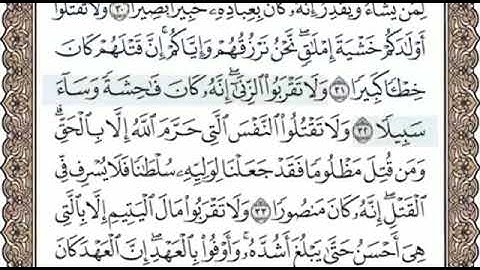 لِمَن يَشَاءُ وَيَقْدِرُ إِنَّهُ كَانَ بِعِبَادِهِ خَبِيرًا بَصِيرًا ٣٠ وَلَا تَقْتُلُوا
أَوْلَادَكُمْ خَشْيَةَ إِمْلَاقٍ نَّحْنُ نَرْزُقُهُمْ وَإِيَّاكُمْ إِنَّ قَتْلَهُمْ كَانَ
خِطْـًٔا كَبِيرًا ٣١ وَلَا تَقْرَبُوا الزِّنَىٰ إِنَّهُ كَانَ فَاحِشَةً وَسَاءَ
سَبِيلًا ٣٢ وَلَا تَقْتُلُوا النَّفْسَ الَّتِي حَرَّمَ اللَّهُ إِلَّا بِالْحَقِّ
وَمَن قُتِلَ مَظْلُومًا فَقَدْ جَعَلْنَا لِوَلِيِّهِ سُلْطَانًا فَلَا يُسْرِف فِّي
الْقَتْلِ إِنَّهُ كَانَ مَنصُورًا ٣٣ وَلَا تَقْرَبُوا مَالَ الْيَتِيمِ إِلَّا بِالَّتِي
هِيَ أَحْسَنُ حَتَّىٰ يَبْلُغَ أَشُدَّهُ وَأَوْفُوا بِالْعَهْدِ إِنَّ الْعَهْدَ كَانَ